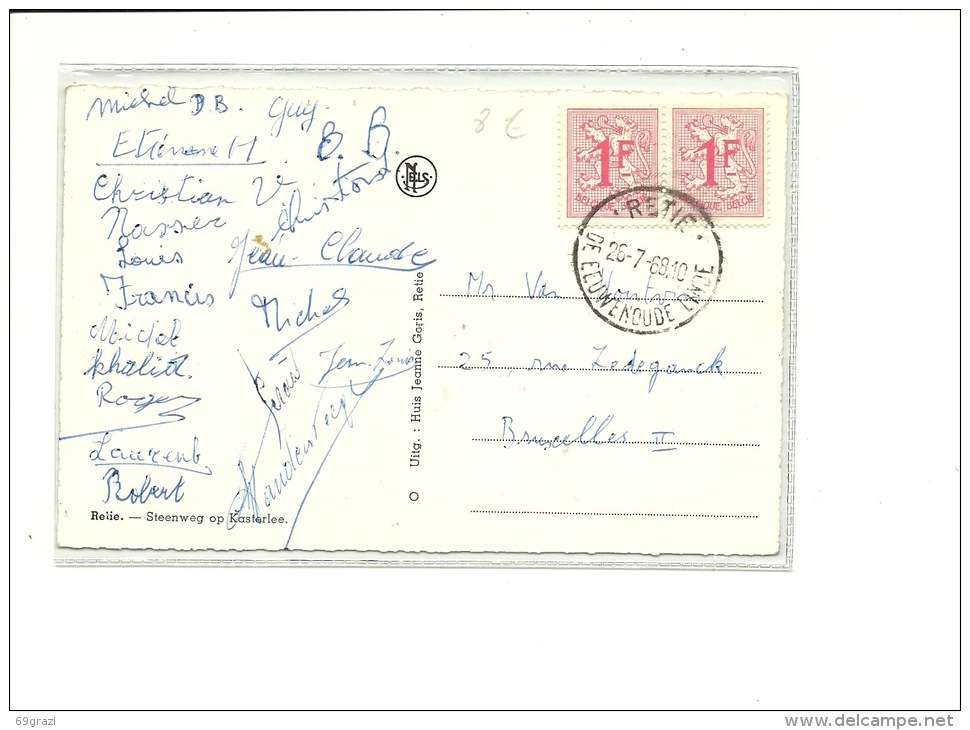 Michel D.B. Guy.
Etienne H B. B.
Christian V Christous
Nasser
Louis Jean-Claude
Francis
Michel
Michel
Khalid.
Roger
Gérard Jean-Louis
Laurent
Robert
Retie. — Steenweg op Kasterlee.
8 €
NELS
Uitg. : Huis Jeanne Goris, Retie
1F 1F
BELGIQUE-BELGIE
· RETIE ·
26-7-68.10
DE EEUWENOUDE LINDE
Mr Van
25, rue Ledeganck
Bruxelles II
69grazi
www.delcampe.net